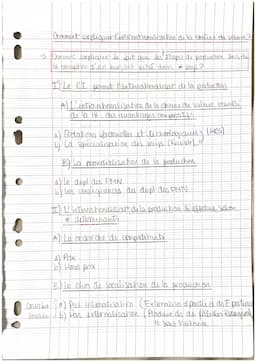 Comment expliquer l'internationalisation de la chaîne de valeur ?
Comment expliquer le fait que les étapes de production
la conception d'un bien, est située dans ≠ pays ?
I) Le CI permet l'internationalisat° de la product°
A) L'internationalisation de la chaine de valeur
de la th. des avantages comparatifs
a) Dotations factorielles et technologiques (HOS)
b) La spécialisation des pays (Ricardo)
B) La mondialisation de la production
a) Le dépl des FMN
b) Les conséquences du dépl des FMN
II) L'internationalisat° de la production s'effectue selon
≠ déterminants
A) La recherche de compétitivité
a) Prix
b) Hors prix
B) Le choix de localisation de la production
a) Par internalisation
b) Par externalisation